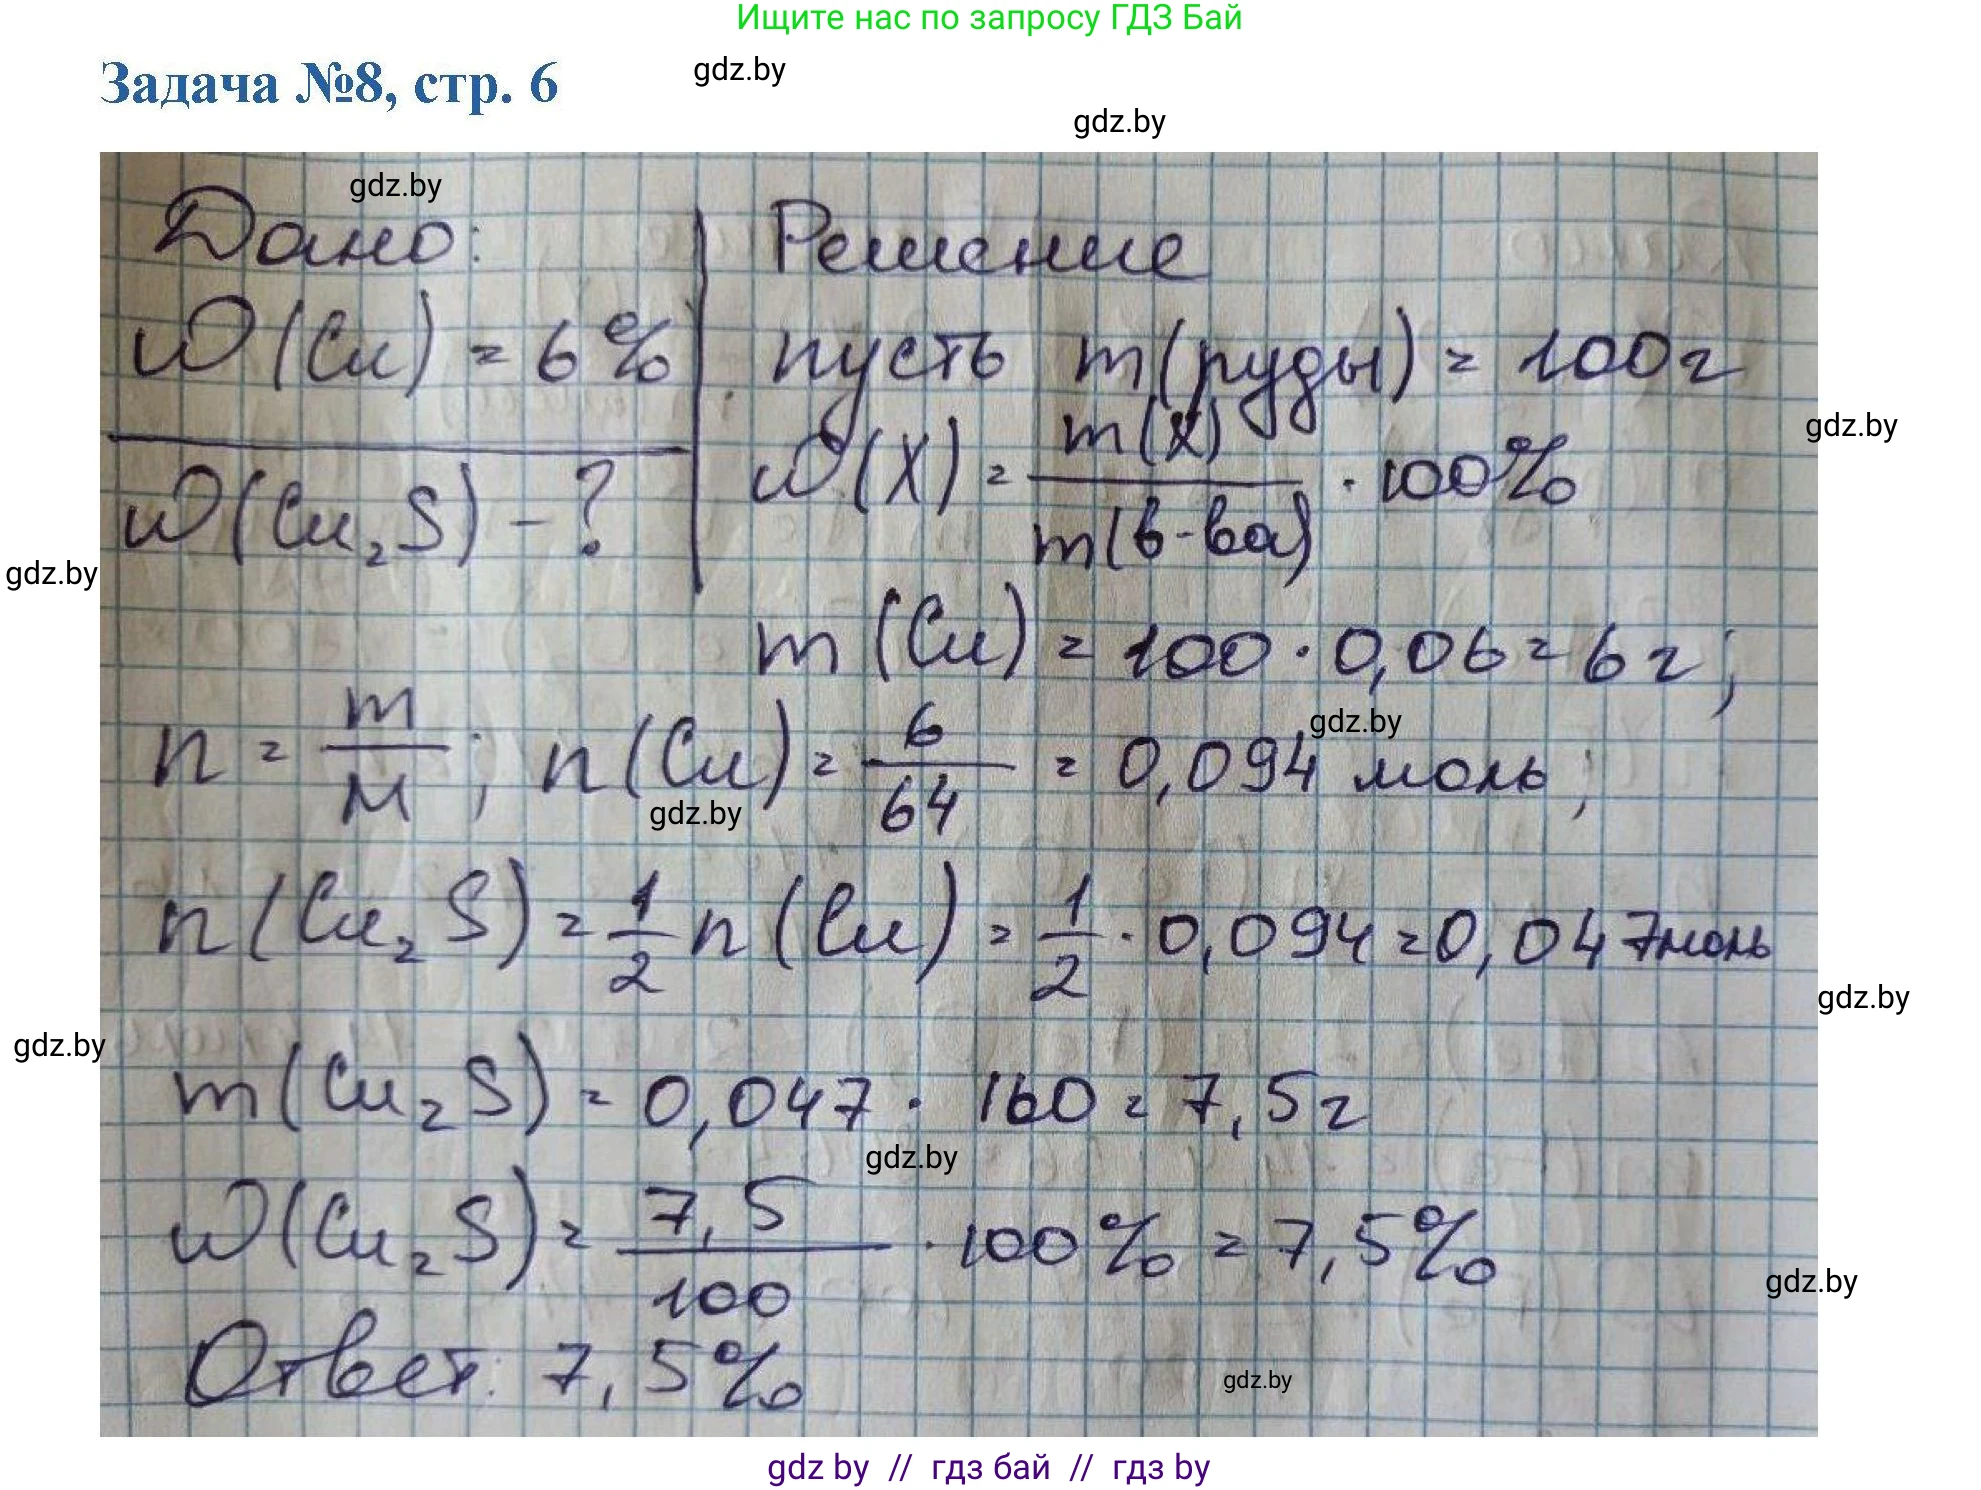 Ищите нас по запросу ГДЗ Бай
Задача №8, стр. 6
gdz.by
gdz.by
gdz.by
Дано:
Решение
ω(Cu) = 6%
пусть m(руды) = 100г
gdz.by
ω(X) = m(X)/m(в-ва) · 100%
ω(Cu₂S) - ?
gdz.by
m(Cu) = 100 · 0,06 = 6г;
gdz.by
n = m/M; n(Cu) = 6/64 = 0,094 моль;
gdz.by
n(Cu₂S) = 1/2 n(Cu) = 1/2 · 0,094 = 0,047моль
gdz.by
gdz.by
m(Cu₂S) = 0,047 · 160 = 7,5г
gdz.by
ω(Cu₂S) = 7,5/100 · 100% = 7,5%
gdz.by
Ответ: 7,5%
gdz.by
gdz by // гдз бай // гдз by